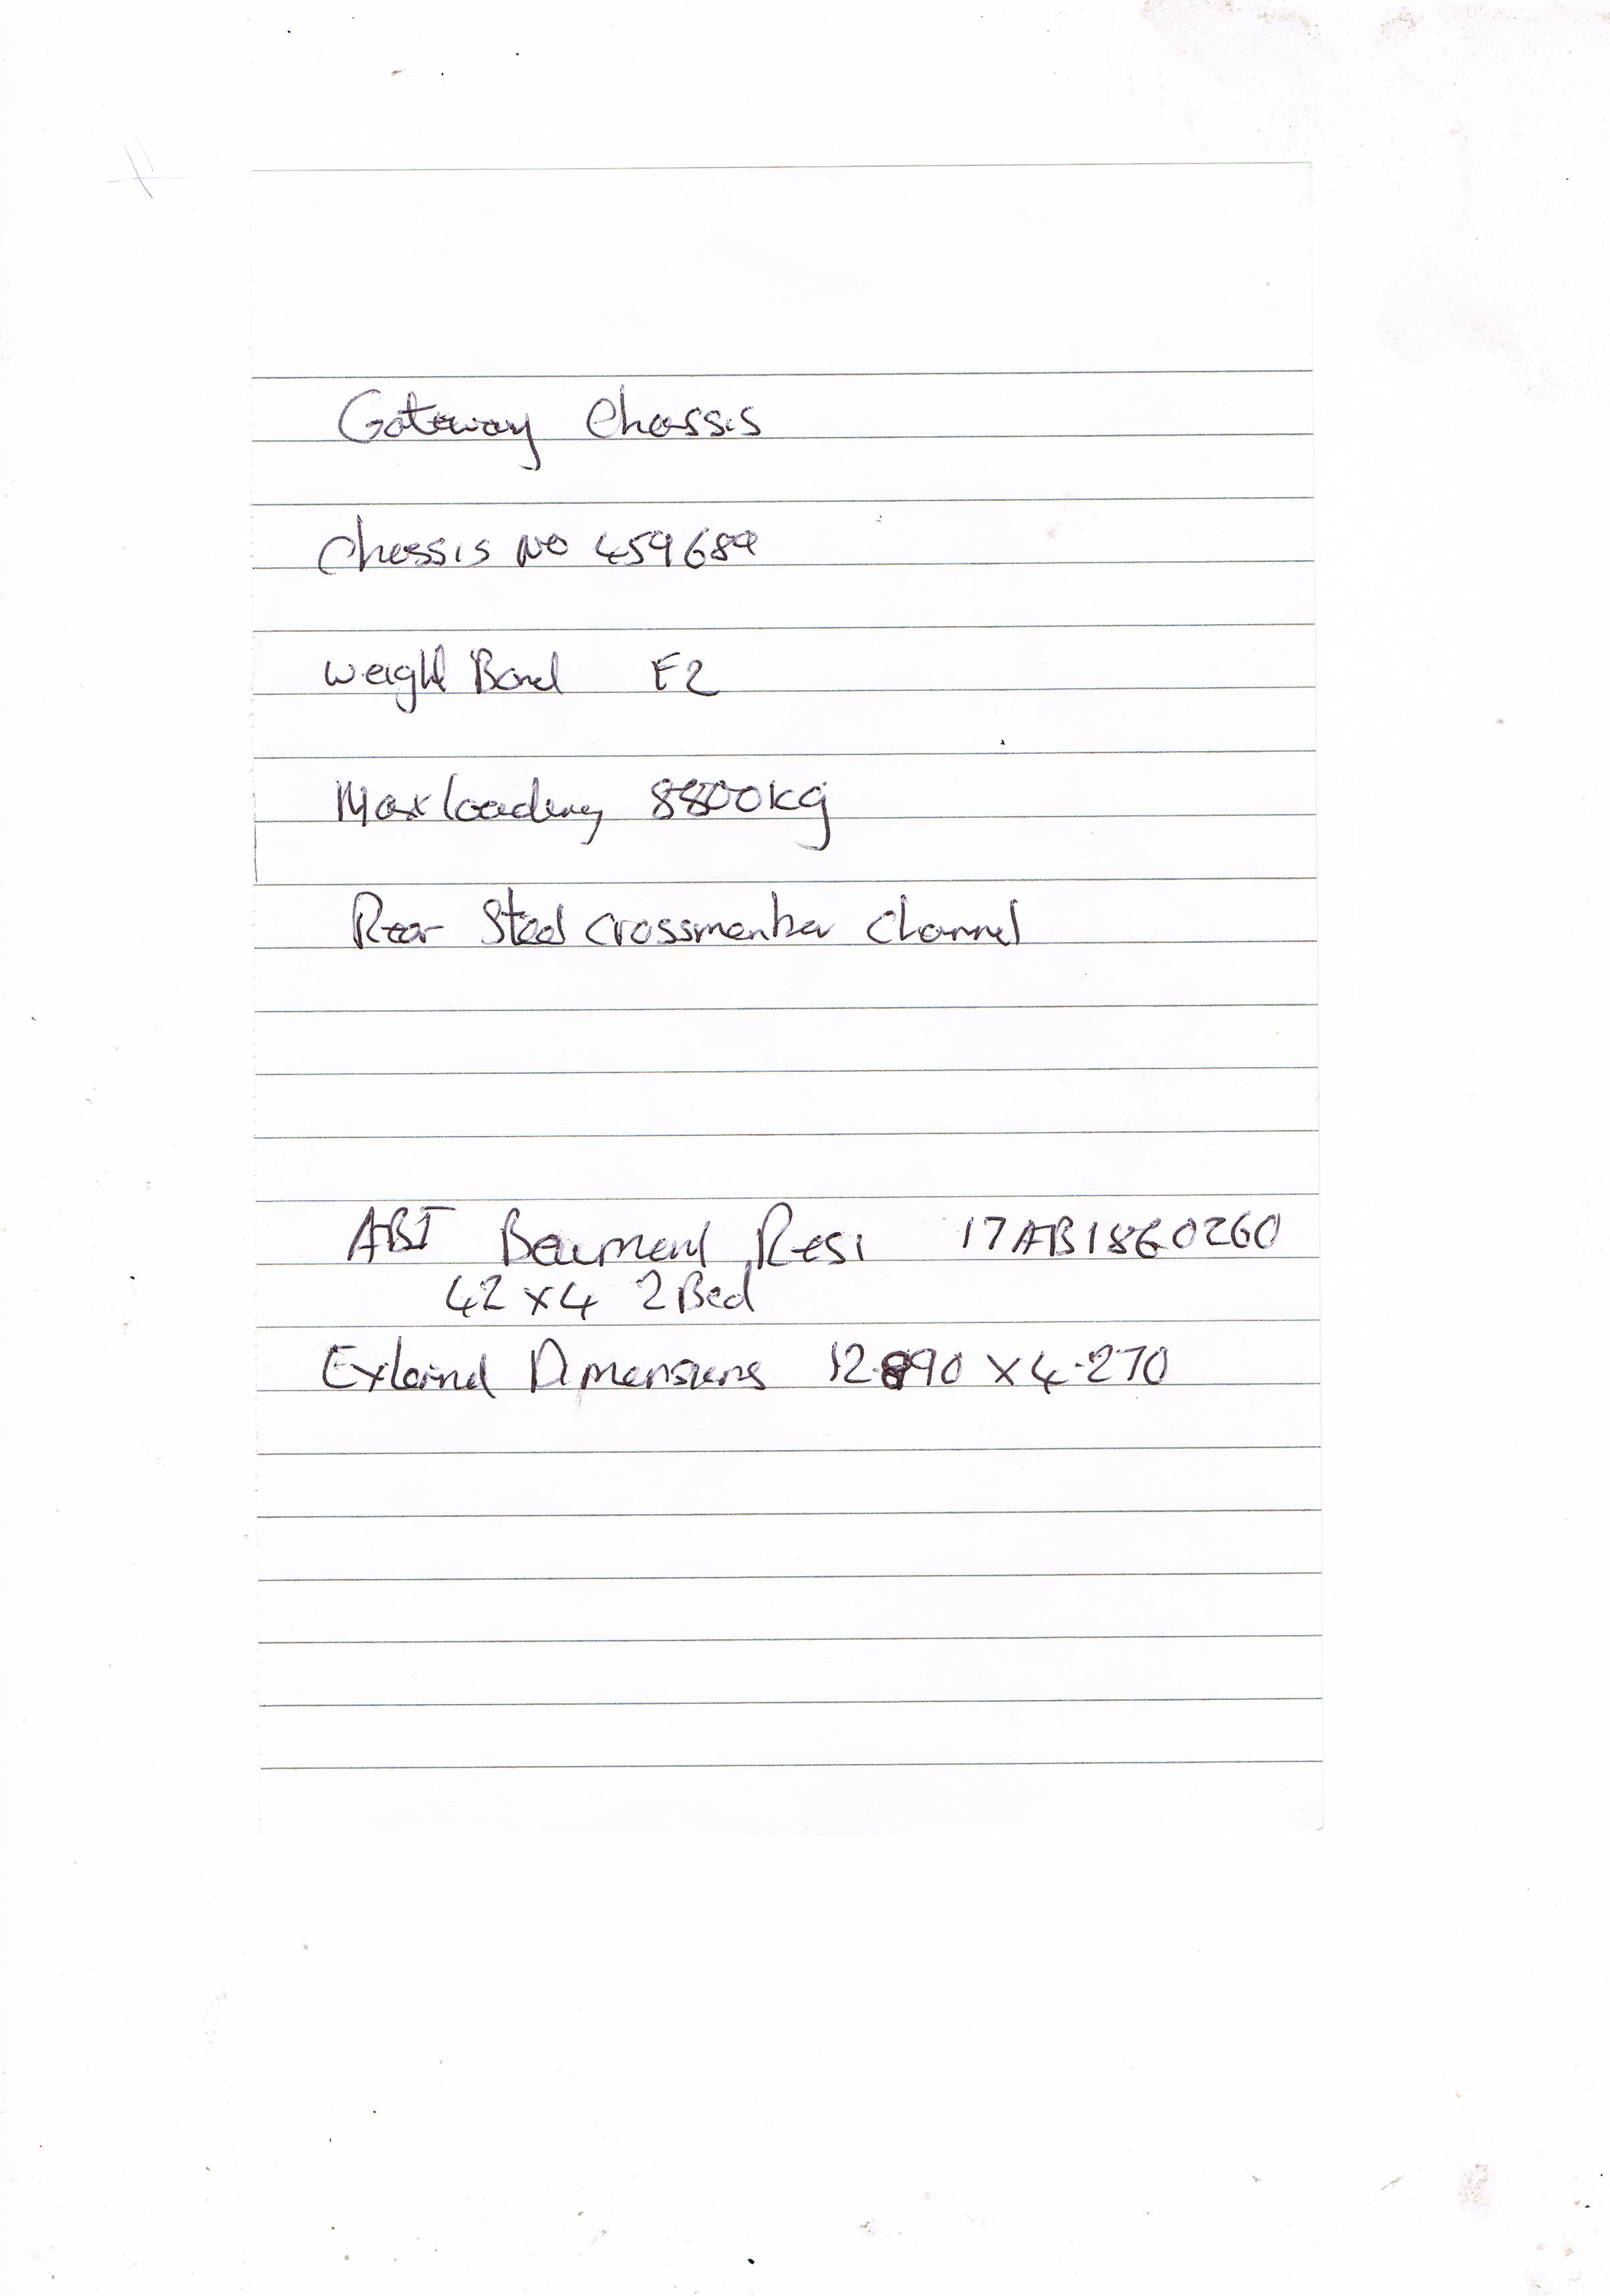 Gateway Chassis
Chassis NO 459689
Weight Band F2
Max loading 8800kg
Rear Steel crossmember Channel
ABI Beaumont Resi 17AB1860260
42 x 4 2 Bed
External Dimensions 12.890 x 4.270